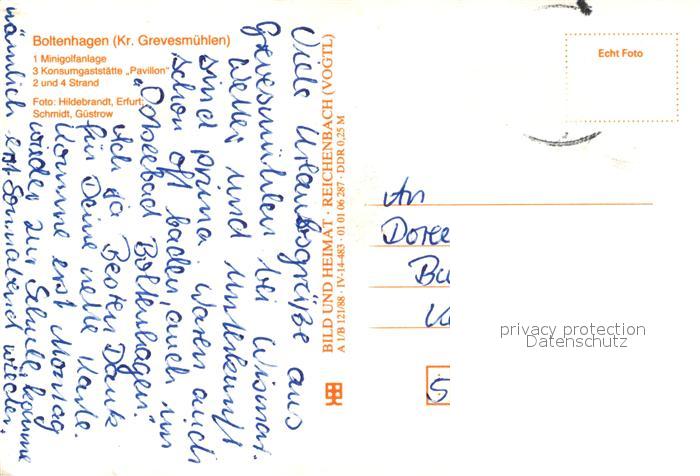 Boltenhagen (Kr. Grevesmühlen)
1 Minigolfanlage
3 Konsumgaststätte „Pavillon"
2 und 4 Strand
Foto: Hildebrandt, Erfurt;
Schmidt, Güstrow
Viele Urlaubsgrüße aus
Grevesmühlen bei Wismar.
Wetter und Unterkunft
sind prima, waren auch
schon oft baden, auch im
„Ostseebad Boltenhagen".
Ach ja Besten Dank
für Deine nette Karte.
Komme erst Montag
wieder zur Schule, komme
nämlich erst Sonnabend wieder.
BILD UND HEIMAT · REICHENBACH (VOGTL)
A 1/B 121/88 · IV-14-483 · 01 01 06 287 · DDR 0,25 M
Echt Foto
An
Doree
Bu
5
privacy protection
Datenschutz